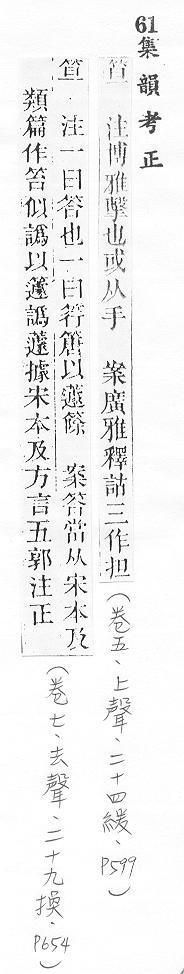 61集韻考正
笪 注博雅擊也或从手 案廣雅釋詁三作担(卷五、上聲、二十四緩、P599)
笪 注一曰答也一曰筕篖以蘧篨 案答當从宋本及
類篇作笞似譌以籧譌蘧據宋本及方言五郭注正(卷七、去聲、二十九換、P654)